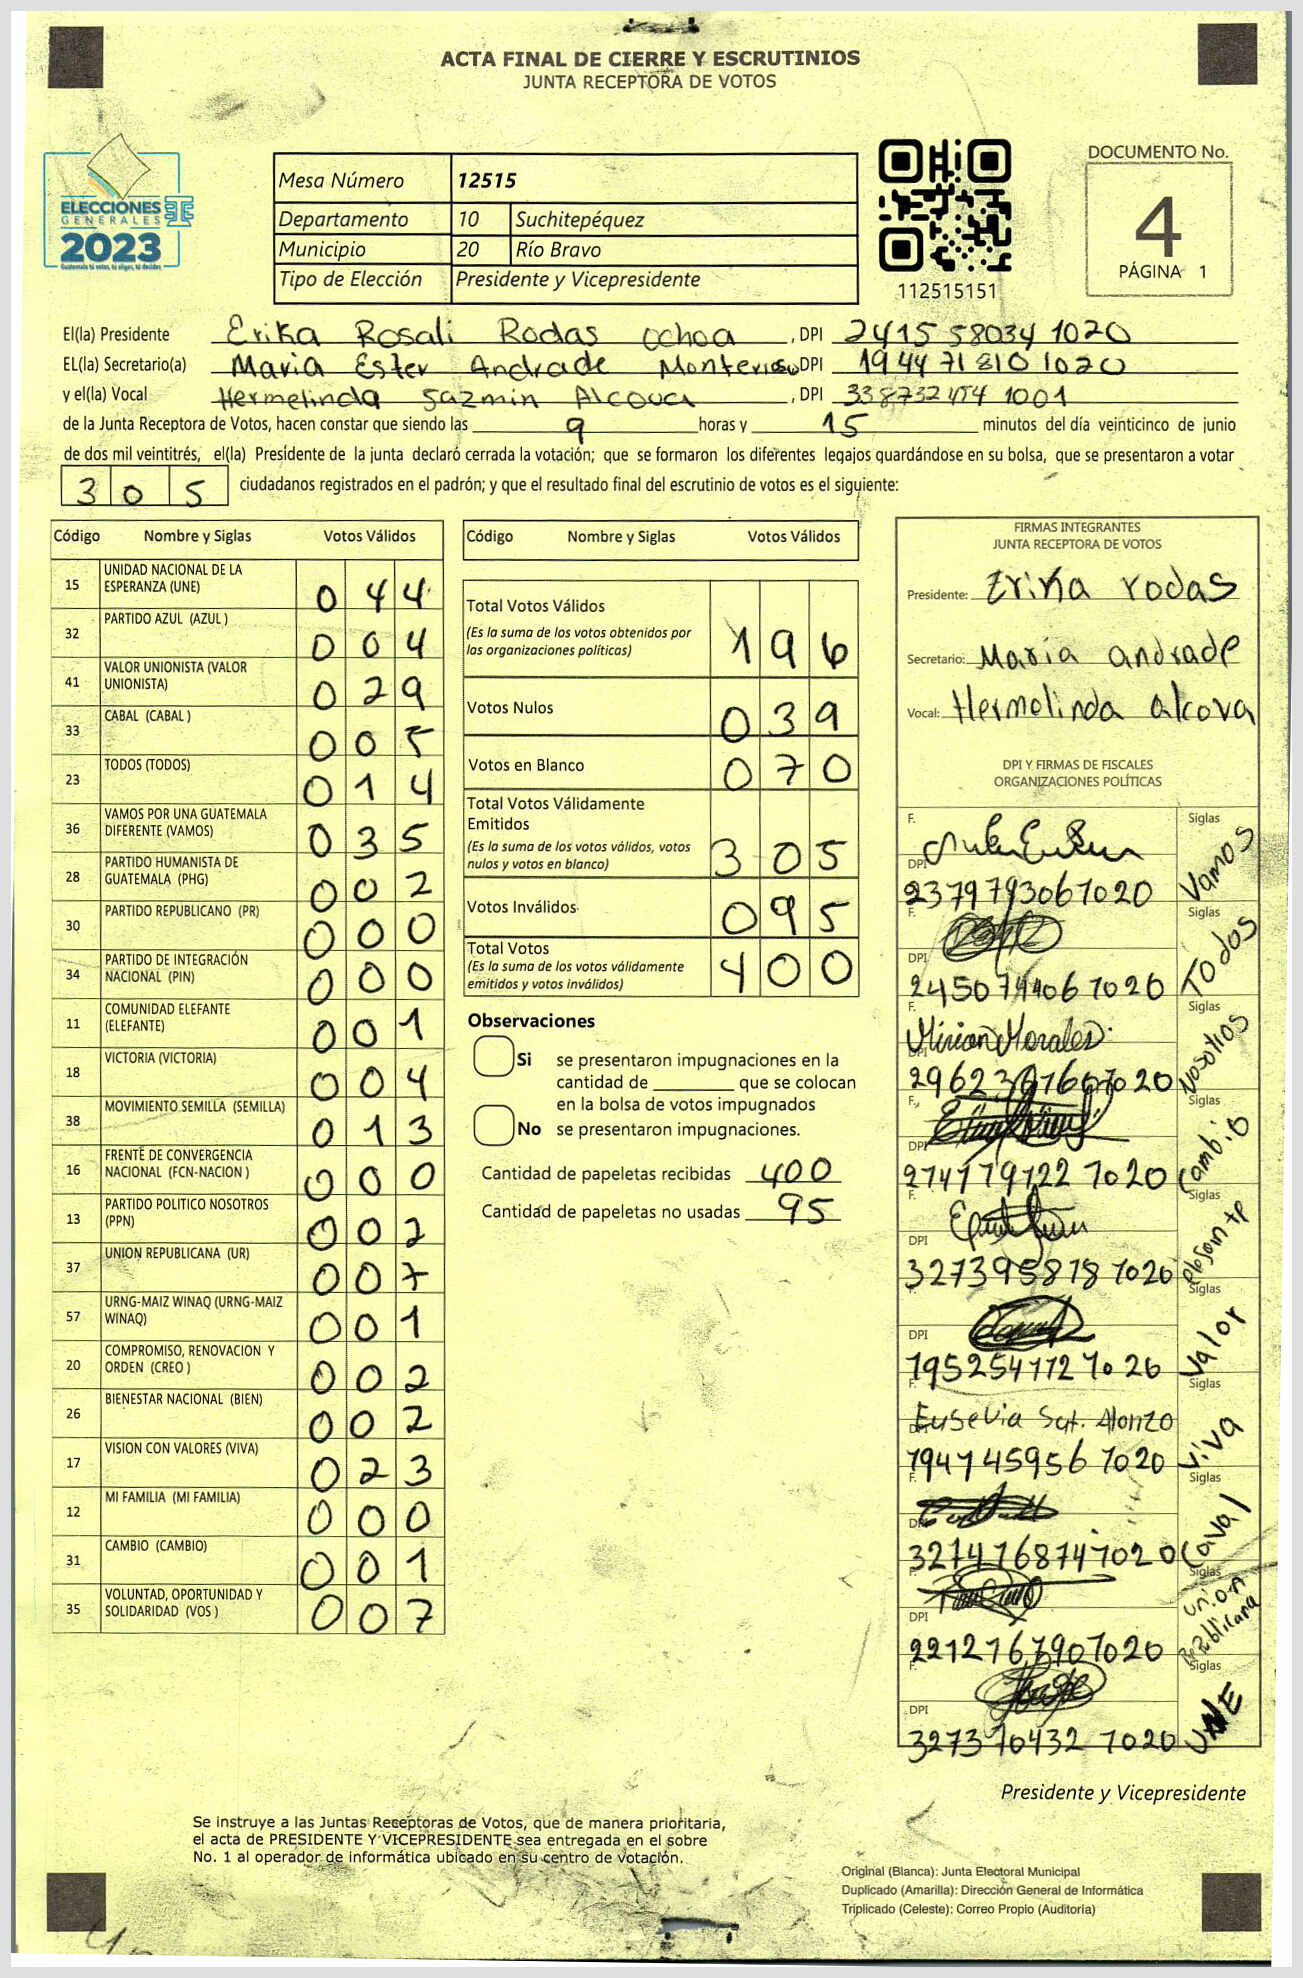 ACTA FINAL DE CIERRE Y ESCRUTINIOS
JUNTA RECEPTORA DE VOTOS
ELECCIONES
GENERALES
2023
Guatemala tú votas, tú eliges, tú decides
Mesa Número 12515
Departamento 10 Suchitepéquez
Municipio 20 Río Bravo
Tipo de Elección Presidente y Vicepresidente
112515151
DOCUMENTO No.
4
PÁGINA 1
El(la) Presidente Erika Rosali Rodas Ochoa , DPI 2415 58034 1020
EL(la) Secretario(a) Maria Ester Andrade Monterroso DPI 1944 71810 1020
y el(la) Vocal Hermelinda Sazmin Alcova , DPI 338732454 1001
de la Junta Receptora de Votos, hacen constar que siendo las 9 horas y 15 minutos del día veinticinco de junio
de dos mil veintitrés, el(la) Presidente de la junta declaró cerrada la votación; que se formaron los diferentes legajos quardándose en su bolsa, que se presentaron a votar
305 ciudadanos registrados en el padrón; y que el resultado final del escrutinio de votos es el siguiente:
Código Nombre y Siglas Votos Válidos
15 UNIDAD NACIONAL DE LA ESPERANZA (UNE) 044
32 PARTIDO AZUL (AZUL ) 004
41 VALOR UNIONISTA (VALOR UNIONISTA) 029
33 CABAL (CABAL ) 005
23 TODOS (TODOS) 014
36 VAMOS POR UNA GUATEMALA DIFERENTE (VAMOS) 035
28 PARTIDO HUMANISTA DE GUATEMALA (PHG) 002
30 PARTIDO REPUBLICANO (PR) 000
34 PARTIDO DE INTEGRACIÓN NACIONAL (PIN) 000
11 COMUNIDAD ELEFANTE (ELEFANTE) 001
18 VICTORIA (VICTORIA) 004
38 MOVIMIENTO SEMILLA (SEMILLA) 013
16 FRENTE DE CONVERGENCIA NACIONAL (FCN-NACION ) 000
13 PARTIDO POLITICO NOSOTROS (PPN) 002
37 UNION REPUBLICANA (UR) 007
57 URNG-MAIZ WINAQ (URNG-MAIZ WINAQ) 001
20 COMPROMISO, RENOVACION Y ORDEN (CREO ) 002
26 BIENESTAR NACIONAL (BIEN) 002
17 VISION CON VALORES (VIVA) 023
12 MI FAMILIA (MI FAMILIA) 000
31 CAMBIO (CAMBIO) 001
35 VOLUNTAD, OPORTUNIDAD Y SOLIDARIDAD (VOS ) 007
Código Nombre y Siglas Votos Válidos
Total Votos Válidos 196
(Es la suma de los votos obtenidos por
las organizaciones políticas)
Votos Nulos 039
Votos en Blanco 070
Total Votos Válidamente
Emitidos 305
(Es la suma de los votos válidos, votos
nulos y votos en blanco)
Votos Inválidos 095
Total Votos 400
(Es la suma de los votos válidamente
emitidos y votos inválidos)
Observaciones
Si se presentaron impugnaciones en la
cantidad de ________ que se colocan
en la bolsa de votos impugnados
No se presentaron impugnaciones.
Cantidad de papeletas recibidas 400
Cantidad de papeletas no usadas 95
FIRMAS INTEGRANTES
JUNTA RECEPTORA DE VOTOS
Presidente: Erika rodas
Secretario: Maria andrade
Vocal: Hermelinda alcova
DPI Y FIRMAS DE FISCALES
ORGANIZACIONES POLÍTICAS
F. Siglas Vamos
DPI 2379793061020
F. Siglas Todos
DPI 2450744061020
F. Mirian Morales Siglas Nosotros
DPI
F. Siglas Cambio
DPI 274179722 1020
F. Siglas
DPI 327395878 1020
F. Siglas Valor
DPI 195254112 1020
F. Eusevia Sut. Alonzo Siglas Viva
DPI 194745956 1020
F. Siglas Caval
DPI 327476874 1020
F. Siglas union Republicana
DPI 221276790 1020
F. Siglas UNE
DPI 327370432 1020
Presidente y Vicepresidente
Se instruye a las Juntas Receptoras de Votos, que de manera prioritaria,
el acta de PRESIDENTE Y VICEPRESIDENTE sea entregada en el sobre
No. 1 al operador de informática ubicado en su centro de votación.
Original (Blanca): Junta Electoral Municipal
Duplicado (Amarilla): Dirección General de Informática
Triplicado (Celeste): Correo Propio (Auditoría)